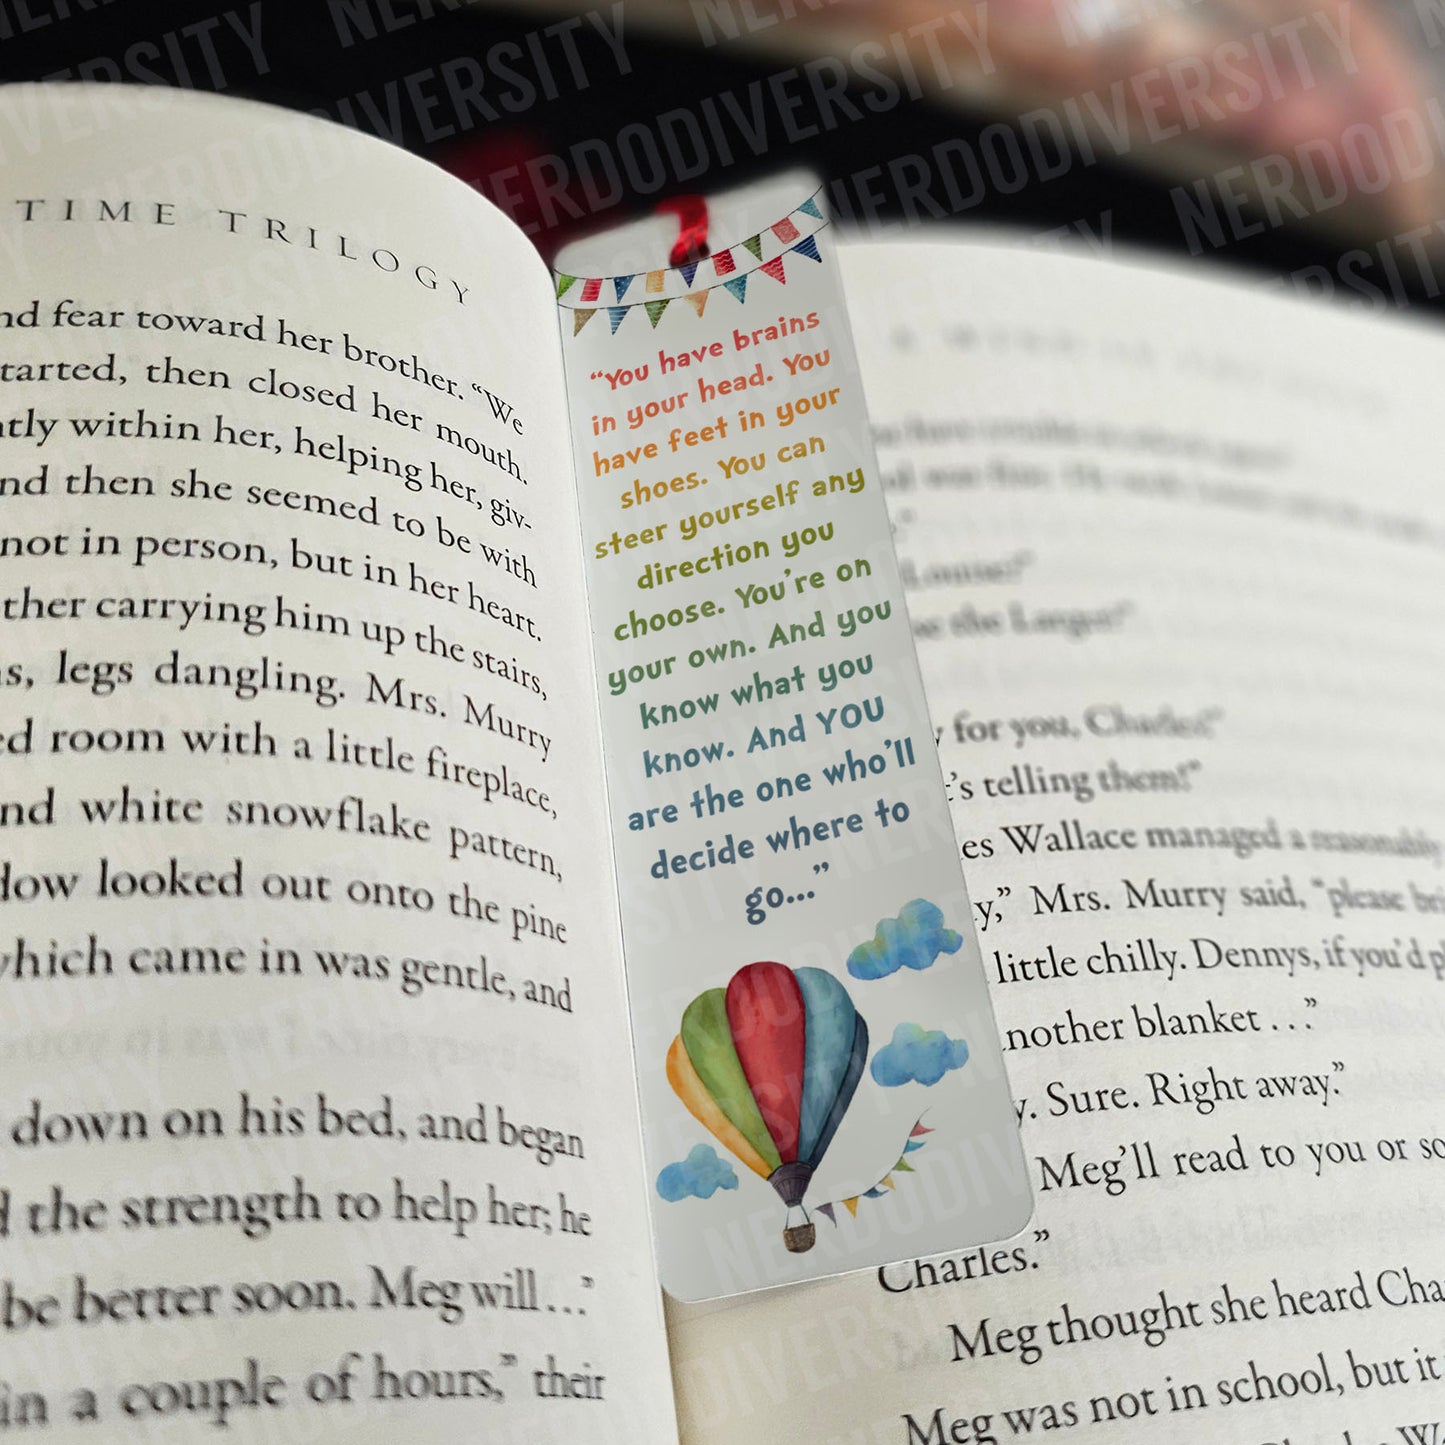 TIME TRILOGY
nd fear toward her brother. “We
tarted, then closed her mouth.
ntly within her, helping her, giv-
nd then she seemed to be with
not in person, but in her heart.
ther carrying him up the stairs,
s, legs dangling. Mrs. Murry
ed room with a little fireplace,
nd white snowflake pattern,
dow looked out onto the pine
which came in was gentle, and
down on his bed, and began
d the strength to help her; he
be better soon. Meg will . . .”
in a couple of hours,” their
“You have brains
in your head. You
have feet in your
shoes. You can
steer yourself any
direction you
choose. You’re on
your own. And you
know what you
know. And YOU
are the one who’ll
decide where to
go...”
Louise?”
se the Larger?”
y for you, Charles?”
t’s telling them!”
es Wallace managed a reasonably
y,” Mrs. Murry said, “please bri
little chilly. Dennys, if you’d pl
nother blanket . . .”
y. Sure. Right away.”
Meg’ll read to you or so
Charles.”
Meg thought she heard Cha
Meg was not in school, but it
NERDODIVERSITY